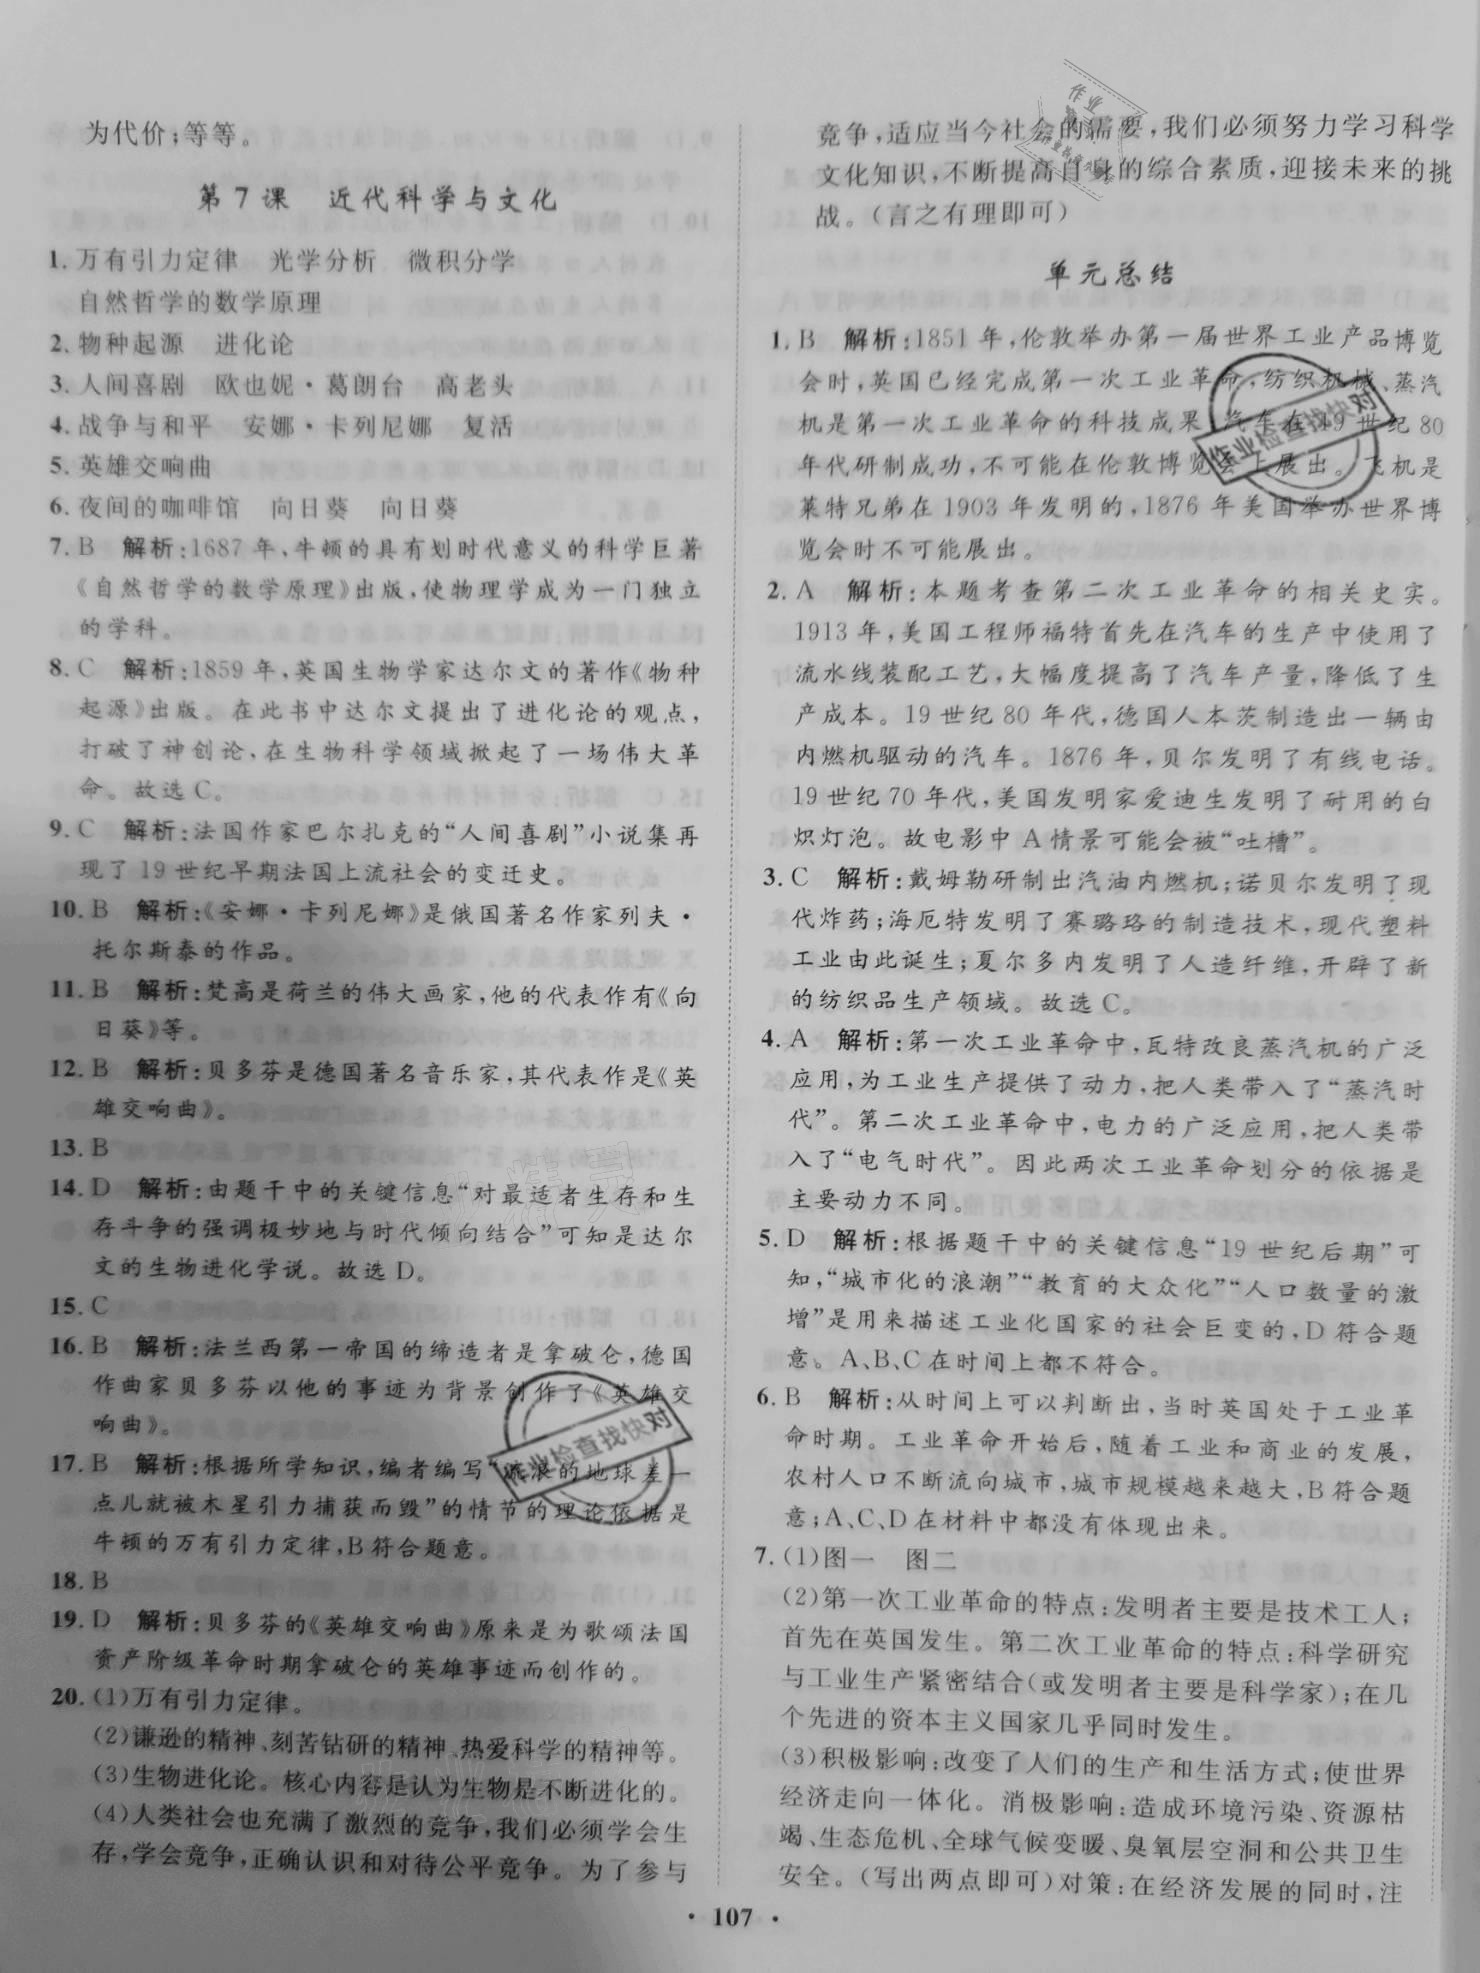 为代价；等等。
第7课　近代科学与文化
1. 万有引力定律　光学分析　微积分学
自然哲学的数学原理
2. 物种起源　进化论
3. 人间喜剧　欧也妮·葛朗台　高老头
4. 战争与和平　安娜·卡列尼娜　复活
5. 英雄交响曲
6. 夜间的咖啡馆　向日葵　向日葵
7. B　解析：1687年，牛顿的具有划时代意义的科学巨著
《自然哲学的数学原理》出版，使物理学成为一门独立
的学科。
8. C　解析：1859年，英国生物学家达尔文的著作《物种
起源》出版。在此书中达尔文提出了进化论的观点，
打破了神创论，在生物科学领域掀起了一场伟大革
命。故选C。
9. C　解析：法国作家巴尔扎克的“人间喜剧”小说集再
现了19世纪早期法国上流社会的变迁史。
10. B　解析：《安娜·卡列尼娜》是俄国著名作家列夫·
托尔斯泰的作品。
11. B　解析：梵高是荷兰的伟大画家，他的代表作有《向
日葵》等。
12. B　解析：贝多芬是德国著名音乐家，其代表作是《英
雄交响曲》。
13. B
14. D　解析：由题干中的关键信息“对最适者生存和生
存斗争的强调极妙地与时代倾向结合”可知是达尔
文的生物进化学说。故选D。
15. C
16. B　解析：法兰西第一帝国的缔造者是拿破仑，德国
作曲家贝多芬以他的事迹为背景创作了《英雄交
响曲》。
17. B　解析：根据所学知识，编者编写“流浪的地球差一
点儿就被木星引力捕获而毁”的情节的理论依据是
牛顿的万有引力定律，B符合题意。
18. B
19. D　解析：贝多芬的《英雄交响曲》原来是为歌颂法国
资产阶级革命时期拿破仑的英雄事迹而创作的。
20. (1)万有引力定律。
(2)谦逊的精神、刻苦钻研的精神、热爱科学的精神等。
(3)生物进化论。核心内容是认为生物是不断进化的。
(4)人类社会也充满了激烈的竞争，我们必须学会生
存，学会竞争，正确认识和对待公平竞争。为了参与
竞争，适应当今社会的需要，我们必须努力学习科学
文化知识，不断提高自身的综合素质，迎接未来的挑
战。（言之有理即可）
单元总结
1. B　解析：1851年，伦敦举办第一届世界工业产品博览
会时，英国已经完成第一次工业革命，纺织机械、蒸汽
机是第一次工业革命的科技成果，汽车在19世纪80
年代研制成功，不可能在伦敦博览会上展出。飞机是
莱特兄弟在1903年发明的，1876年美国举办世界博
览会时不可能展出。
2. A　解析：本题考查第二次工业革命的相关史实。
1913年，美国工程师福特首先在汽车的生产中使用了
流水线装配工艺，大幅度提高了汽车产量，降低了生
产成本。19世纪80年代，德国人本茨制造出一辆由
内燃机驱动的汽车。1876年，贝尔发明了有线电话。
19世纪70年代，美国发明家爱迪生发明了耐用的白
炽灯泡。故电影中A情景可能会被“吐槽”。
3. C　解析：戴姆勒研制出汽油内燃机；诺贝尔发明了现
代炸药；海厄特发明了赛璐珞的制造技术，现代塑料
工业由此诞生；夏尔多内发明了人造纤维，开辟了新
的纺织品生产领域。故选C。
4. A　解析：第一次工业革命中，瓦特改良蒸汽机的广泛
应用，为工业生产提供了动力，把人类带入了“蒸汽时
代”。第二次工业革命中，电力的广泛应用，把人类带
入了“电气时代”。因此两次工业革命划分的依据是
主要动力不同。
5. D　解析：根据题干中的关键信息“19世纪后期”可
知，“城市化的浪潮”“教育的大众化”“人口数量的激
增”是用来描述工业化国家的社会巨变的，D符合题
意。A、B、C在时间上都不符合。
6. B　解析：从时间上可以判断出，当时英国处于工业革
命时期。工业革命开始后，随着工业和商业的发展，
农村人口不断流向城市，城市规模越来越大，B符合题
意；A、C、D在材料中都没有体现出来。
7. (1)图一　图二
(2)第一次工业革命的特点：发明者主要是技术工人；
首先在英国发生。第二次工业革命的特点：科学研究
与工业生产紧密结合（或发明者主要是科学家）；在几
个先进的资本主义国家几乎同时发生。
(3)积极影响：改变了人们的生产和生活方式；使世界
经济走向一体化。消极影响：造成环境污染、资源枯
竭、生态危机、全球气候变暖、臭氧层空洞和公共卫生
安全。（写出两点即可）对策：在经济发展的同时，注
· 107 ·
作业检查找快对
作业检查找快对